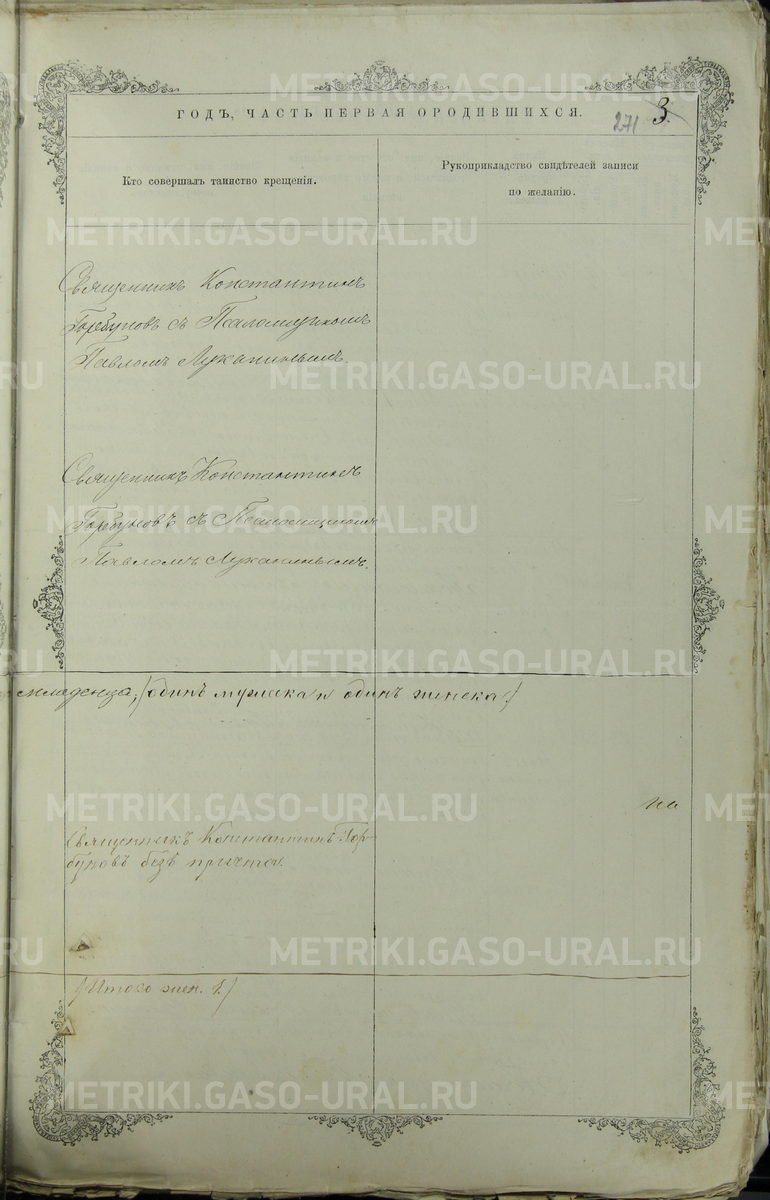 ГОДЪ, ЧАСТЬ ПЕРВАЯ ОРОДИВШИХСЯ.
271 3.
Кто совершалъ таинство крещенія.
Рукоприкладство свидѣтелей записи
по желанію.
Священникъ Константинъ
Горбуновъ съ Псаломщикомъ
Павломъ Луканинымъ.
Священникъ Константинъ
Горбуновъ съ Псаломщикомъ
Павломъ Луканинымъ.
младенца, (одинъ мужска и одинъ женска)
на
Священникъ Константинъ Гор-
буновъ безъ причта.
(Итого жен. 1.)
METRIKI.GASO-URAL.RU